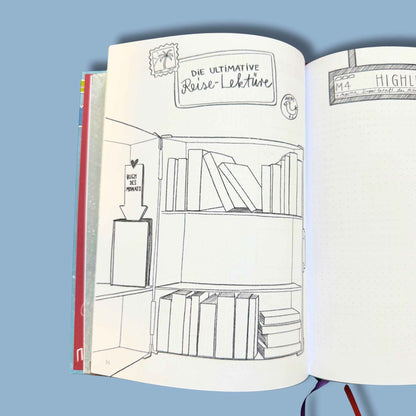 DIE ULTIMATIVE
Reise-Lektüre
BUCH
DES
MONATS
M4
HIGHL